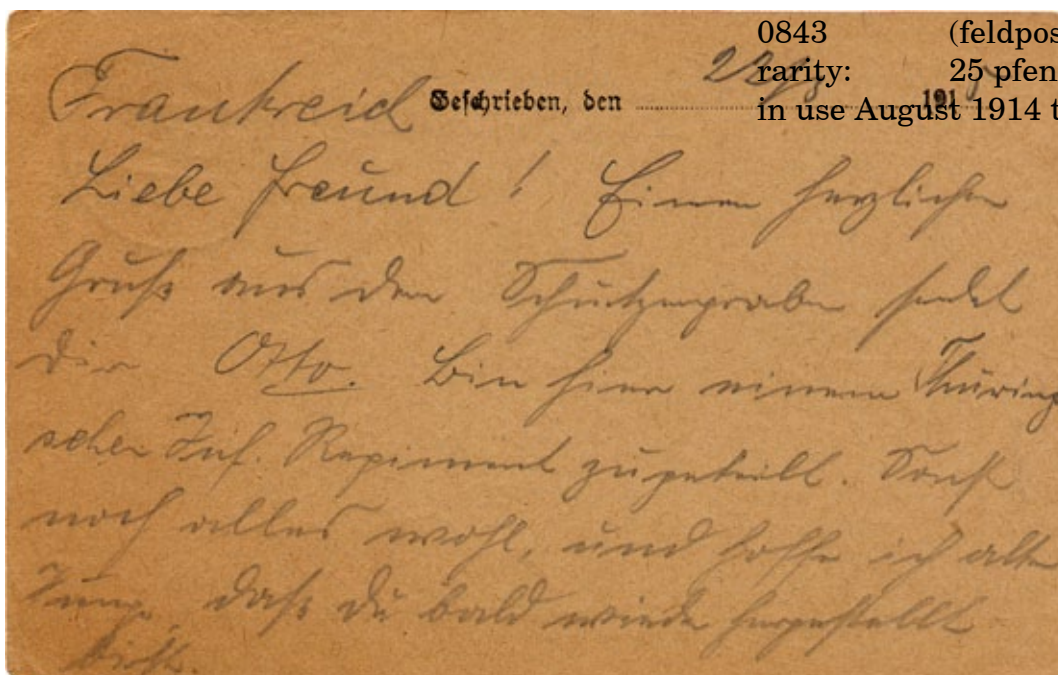 0843 (feldpos
rarity: 25 pfen
in use August 1914 t
Frankreich Geschrieben, den 191
Liebe Freund! Einen herzlichen
Gruß aus dem Schützengraben sendet
dir Otto. Bin hier einem Thüring
schen Inf. Regiment zugeteilt. Sonst
noch alles wohl, und hoffe ich alter
Junge, daß du bald wieder hergestellt
bist.